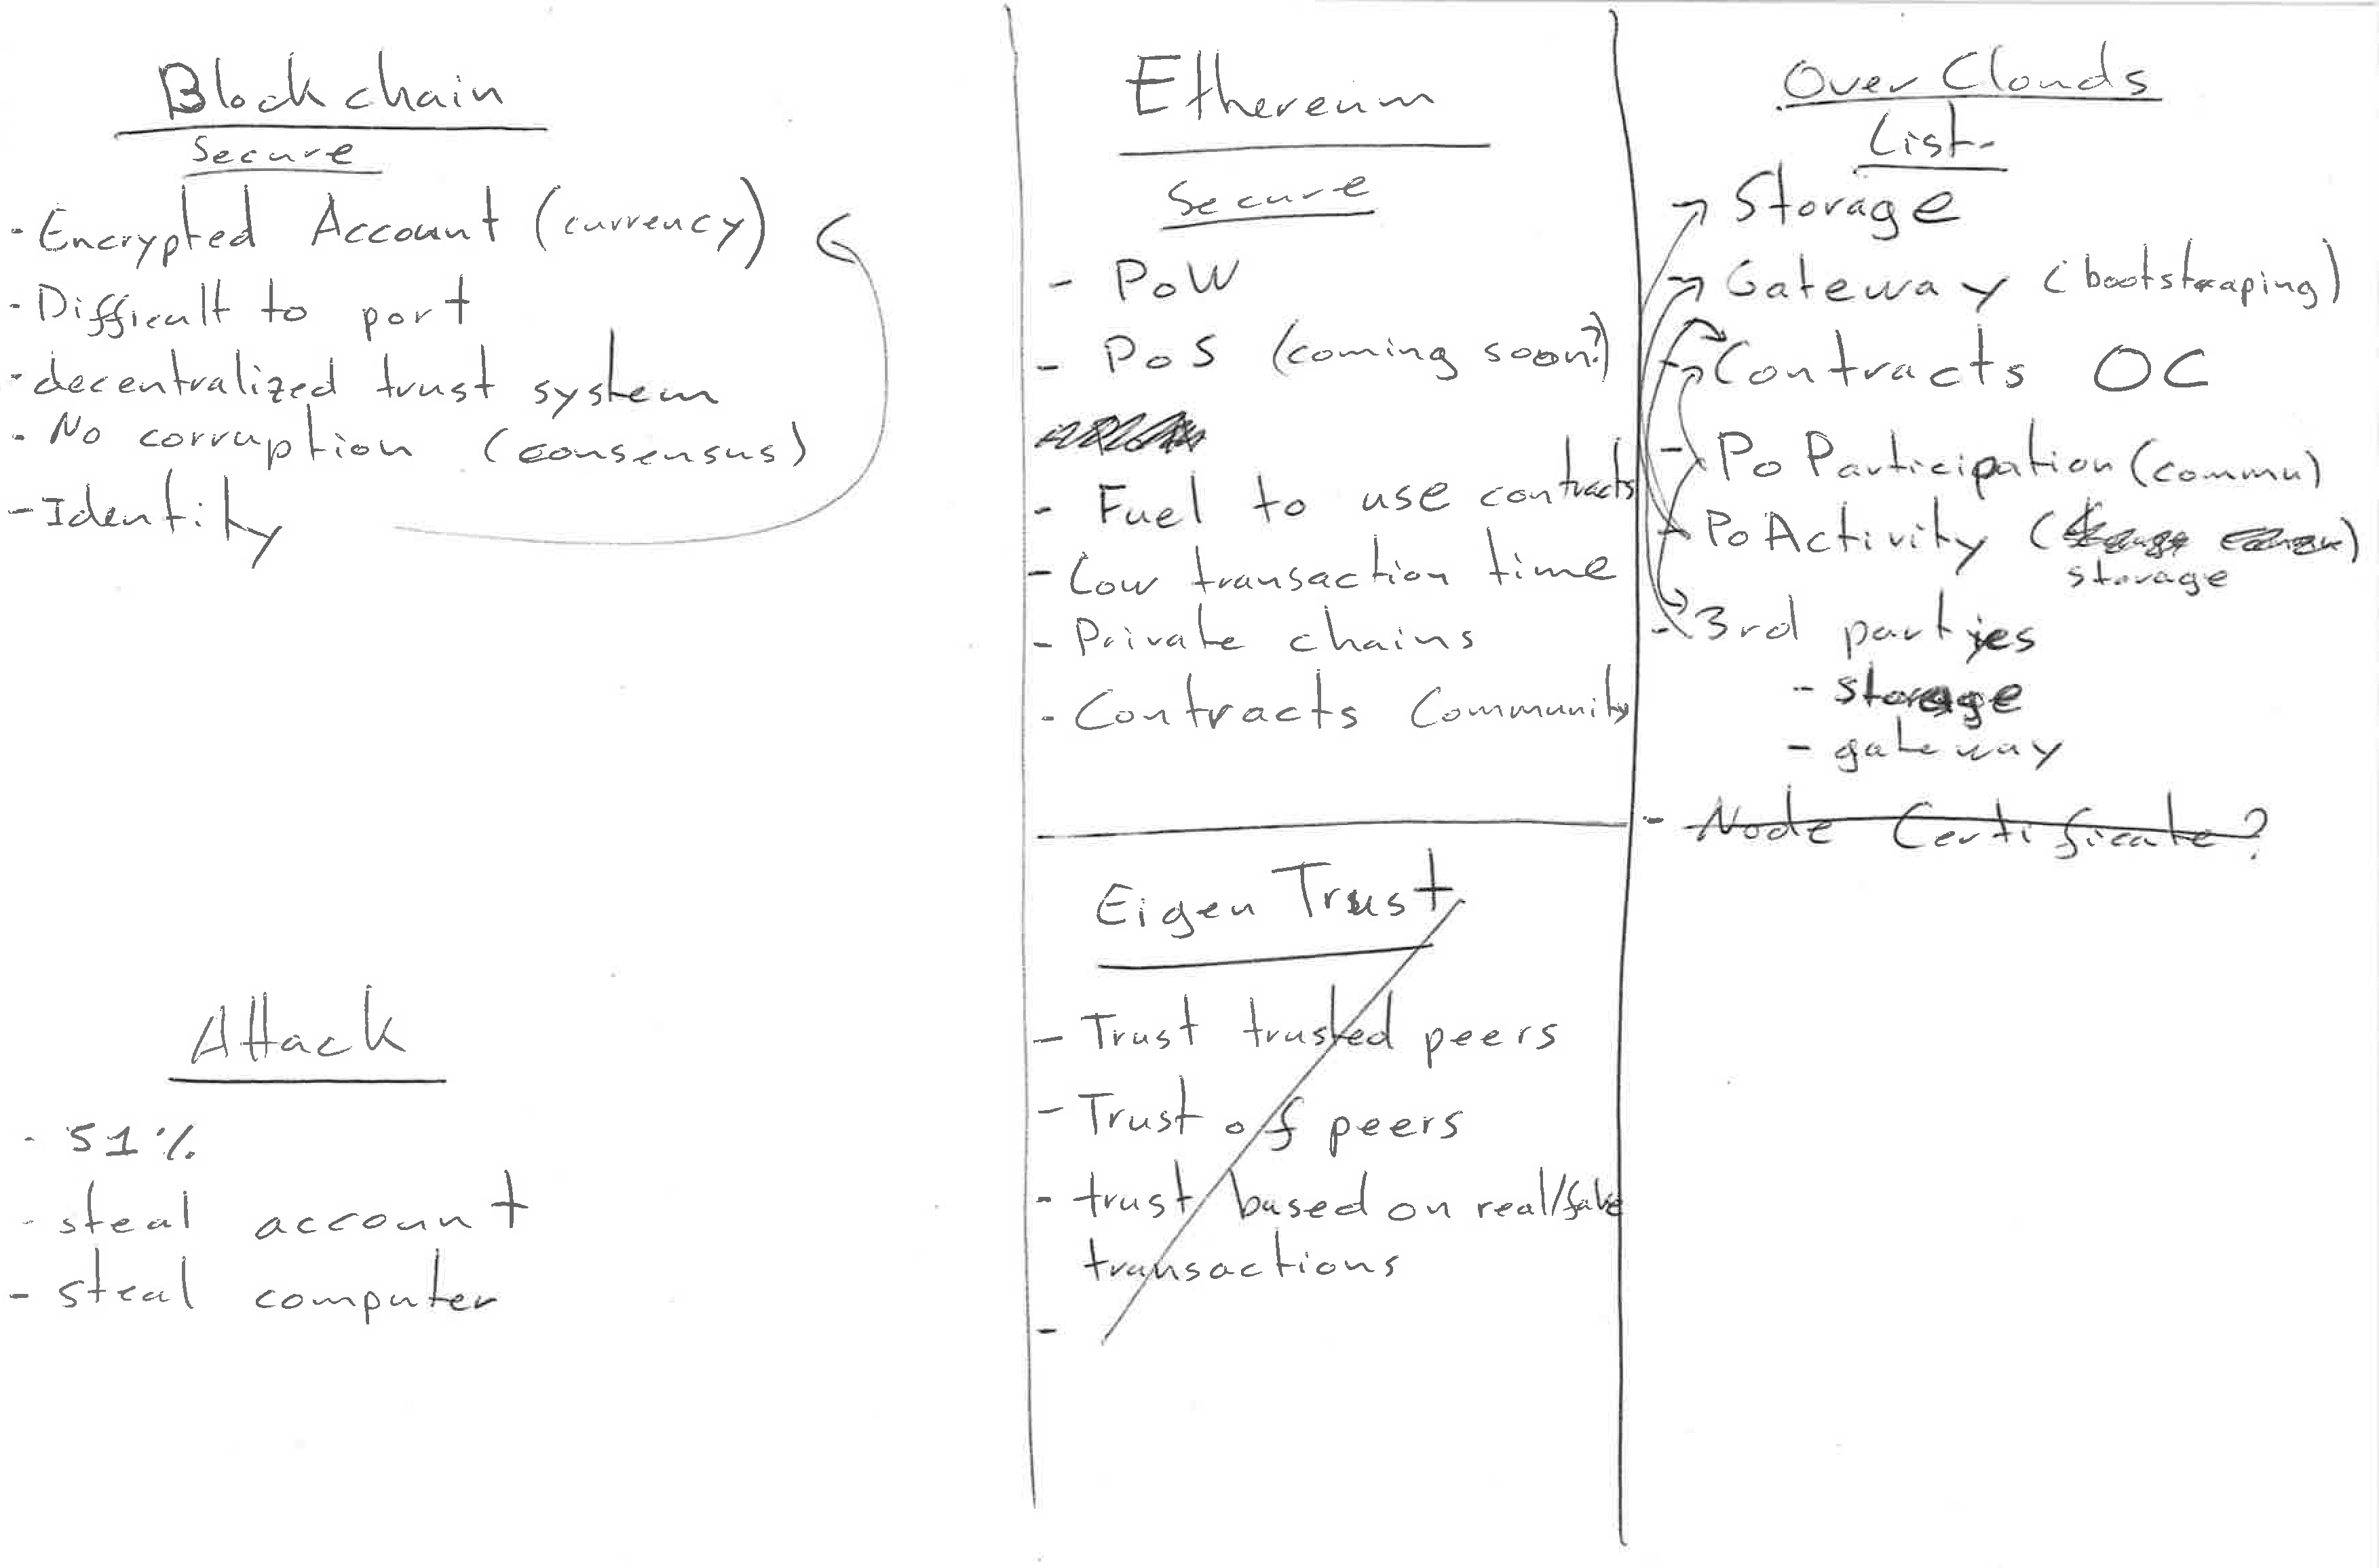 Blockchain
Secure
- Encrypted Account (currency)
- Difficult to port
- decentralized trust system
- No corruption (consensus)
- Identity
Attack
- 51%
- steal account
- steal computer
Ethereum
Secure
- PoW
- PoS (coming soon?)
- Fuel to use contracts
- Low transaction time
- Private chains
- Contracts Community
Eigen Trust
- Trust trusted peers
- Trust of peers
- trust based on real/fake
transactions
-
Over Clouds
List
Storage
- Gateway (bootstraping)
- Contracts OC
- Po Participation (commu)
- Po Activity ( )
storage
- 3rd parties
- storage
- gateway
- Node Certificate?